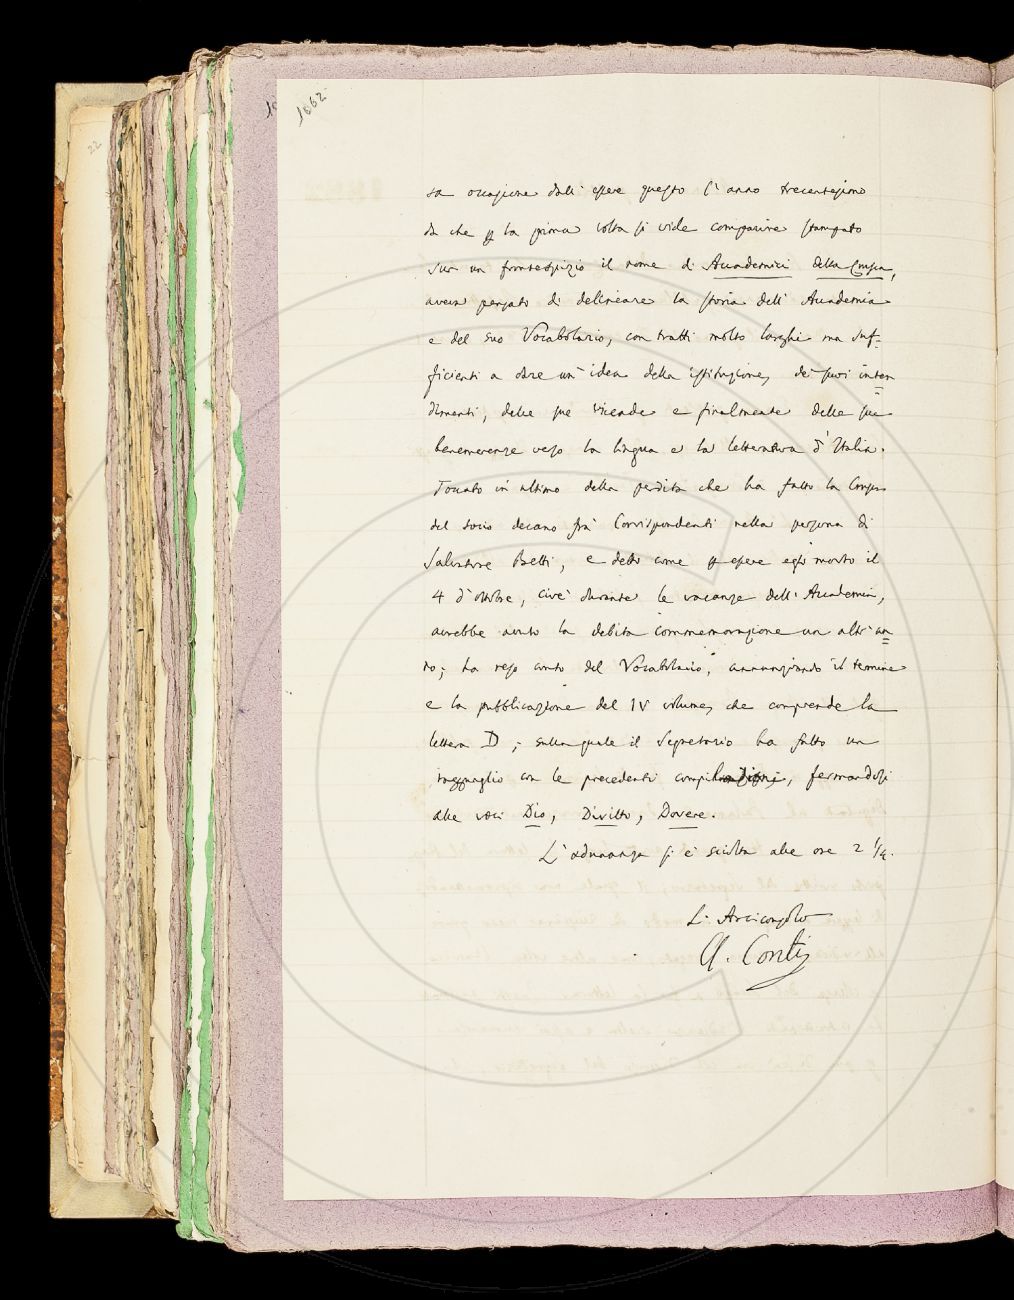 1662
22
sa occasione dall'essere questo l'anno trecentesimo
da che p la prima volta si vide comparire stampato
sur un frontespizio il nome di Accademici della Crusca,
aveva pensato di delineare la storia dell'Accademia
e del suo Vocabolario, con tratti molto larghi ma suf=
ficienti a dare un'idea della istituzione, de' suoi inten=
dimenti, delle sue vicende e finalmente delle sue
benemerenze verso la lingua e la letteratura d'Italia.
Toccato in ultimo della perdita che ha fatto la Crusca
del socio decano fra' Corrispondenti nella persona di
Salvatore Betti, e detto come p essere egli morto il
4 d'ottobre, cioè durante le vacanze dell'Accademia,
avrebbe avuto la debita commemorazione un altr'an=
no; ha reso conto del Vocabolario, annunziando il termine
e la pubblicazione del IV volume, che comprende la
lettera D; sulla quale il Segretario ha fatto un
ragguaglio con le precedenti compilazioni, fermandosi
alle voci Dio, Diritto, Dovere.
L'adunanza si è sciolta alle ore 2 1/4.
L'Arciconsolo
A. Conti